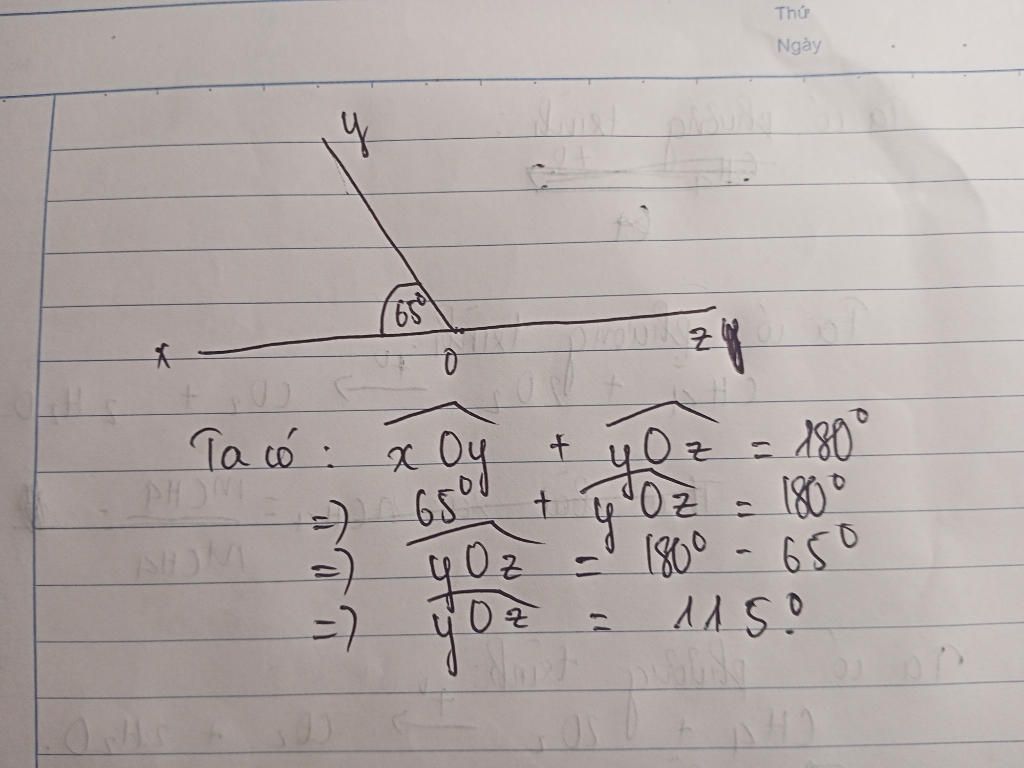 Thứ
Ngày
y
65°
x
O
z
Ta có: xOy + yOz = 180°
=> 65° + yOz = 180°
=> yOz = 180° - 65°
=> yOz = 115°.